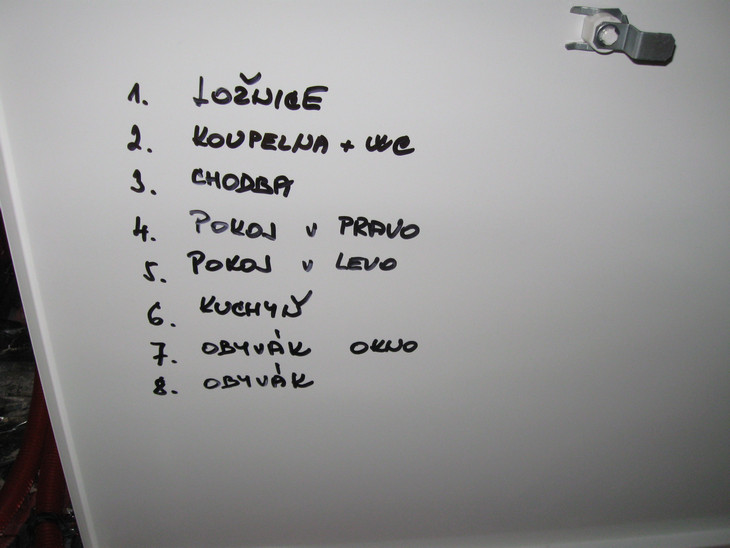 1. LOŽNICE
2. KOUPELNA + WC
3. CHODBA
4. POKOJ V PRAVO
5. POKOJ V LEVO
6. KUCHYŇ
7. OBYVÁK OKNO
8. OBYVÁK